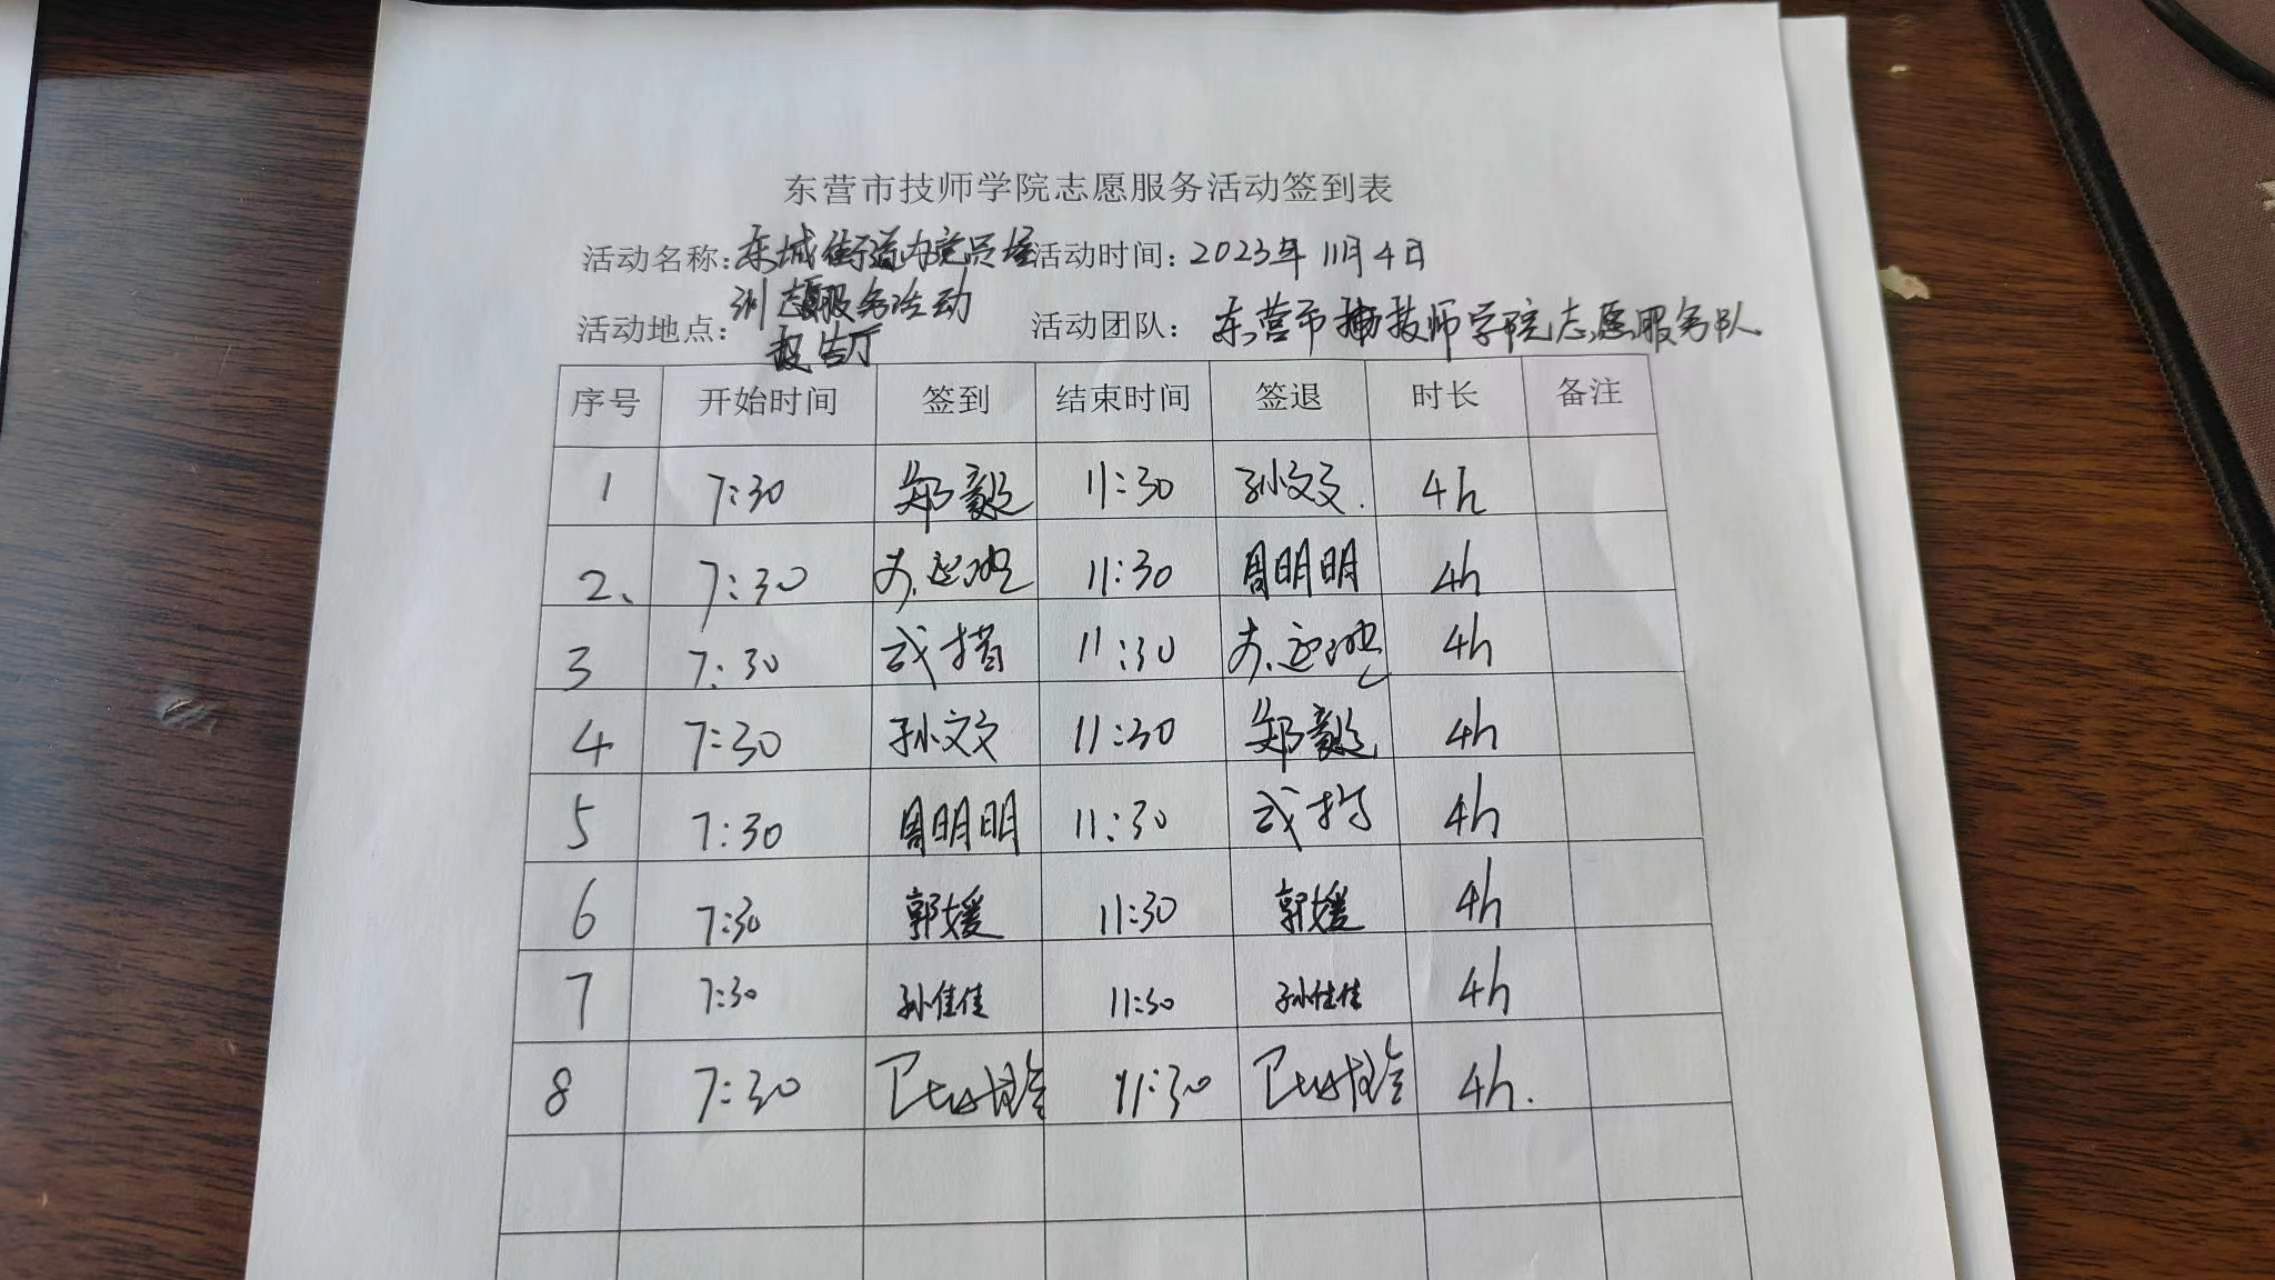 东营市技师学院志愿服务活动签到表
活动名称: 东城街道办党员培 活动时间: 2023年11月4日
训志愿服务活动
活动地点: 报告厅 活动团队: 东营市技师学院志愿服务队
序号 开始时间 签到 结束时间 签退 时长 备注
1 7:30 郑毅 11:30 孙文文. 4h
2、 7:30 11:30 周明明 4h
3 7:30 11:30 4h
4 7:30 孙文文 11:30 郑毅 4h
5 7:30 周明明 11:30 4h
6 7:30 郭媛 11:30 郭媛 4h
7 7:30 孙佳佳 11:30 孙佳佳 4h
8 7:30 11:30 4h.